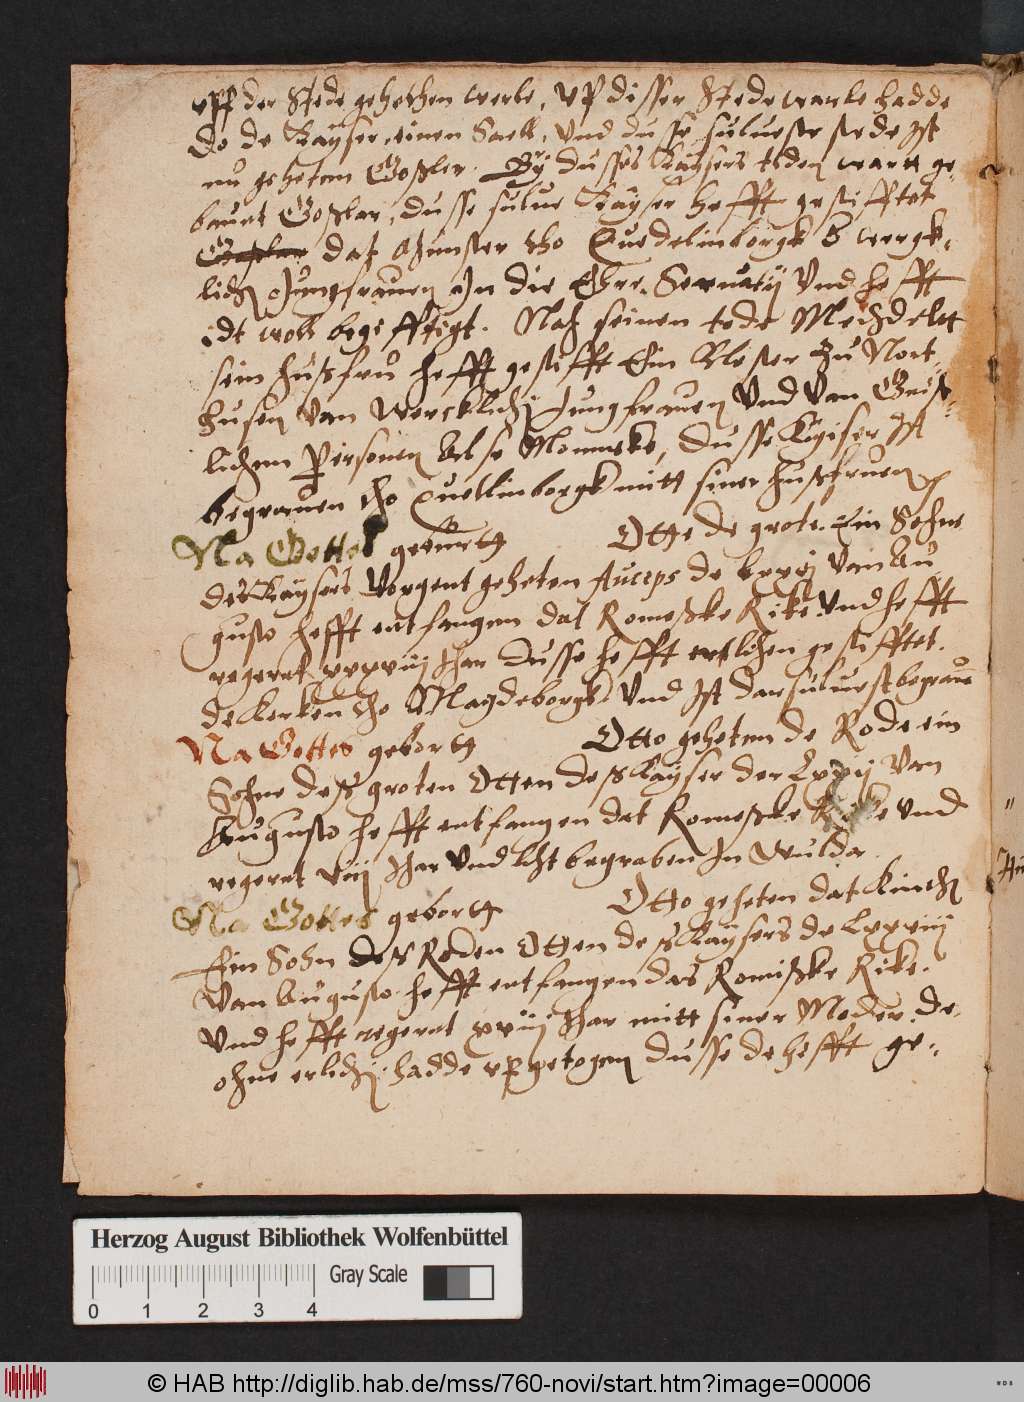 vpf der Stede gehethen werle, vp disser Stede warle hadde
do de Kayser einen Saell, vnd dusse sulueste stede Ist
nu geheten Goßler. By dusses Kaysers teden wartt ge-
bauwt Goßlar, dusse sulue Kayser hefft gestifftet
Goßlar dat Munster tho Quedelinborgk wergk-
lichen Jungfrauen In die Ehre Seruatij Vnd hefft
idt woll begifftigt. Nach seinen tode Mechdelet
sein hußfru hefft gestifft Ein Kloster zu Nort-
husen van wercklichen Jungfrauen Vnd van Geist-
lichenn Personen Alse Monneke, Dusse Kayser Ist
begrauen tho Quellinborgk mitt siner hußfruen
Na Gottes geburtt Otte de grote. Ein Sohne
des Kaysers Vorgent geheten Auceps de lxxvj van Au-
gusto hefft entfangen dat Romeßke Rike Vnd hefft
regeret xxxviij Jhar Dusse hefft gestifftet.
de Kerken tho Magdeborgk Vnd Ist darsuluest begrauen
Na Gottes gebortt Otto geheten de Rode ein
Sohne deß groten Otten deß Kayser der Lxxvij Van
Augusto hefft entfangen dat Romeßke Rike vnd
regeret viij Jhar Vnd licht begraben In wulda
Na Gottes gebortt Otto geheten dat Kindh
Ein Sohn deß Roden Otten deß Kaysers de Lxxviij
Van Augusto hefft entfangen das Romißke Rike.
Vnd hefft regeret xviij Jhar mitt siner Moder. de-
ohne erlichen hadde vpgetogen Dusse de hefft ge-
Herzog August Bibliothek Wolfenbüttel
Gray Scale
0 1 2 3 4
© HAB http://diglib.hab.de/mss/760-novi/start.htm?image=00006